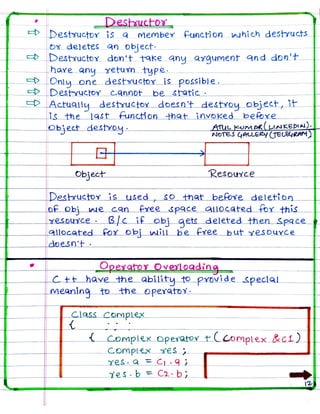 Destructor
⇨ Destructor is a member function which destructs
or deletes an object.
⇨ Destructor don't take any argument and don't
have any return type.
⇨ Only one destructor is possible.
⇨ Destructor cannot be static.
⇨ Actually destructor doesn't destroy object, it
is the last function that invoked before
object destroy.
ATUL KUMAR (LINKEDIN).
NOTES GALLERY (TELEGRAM)
Object Resource
Destructor is used, so that before deletion
of obj we can free space allocated for this
resource. B/C if obj gets deleted then space
allocated for obj will be free but resource
doesn't.
Operator Overloading
C++ have the ability to provide special
meaning to the operator.
Class Complex
{ . . .
{ Complex operator + (Complex &c1)
Complex res ;
res.a = C1.a ;
res.b = C2.b ;
12